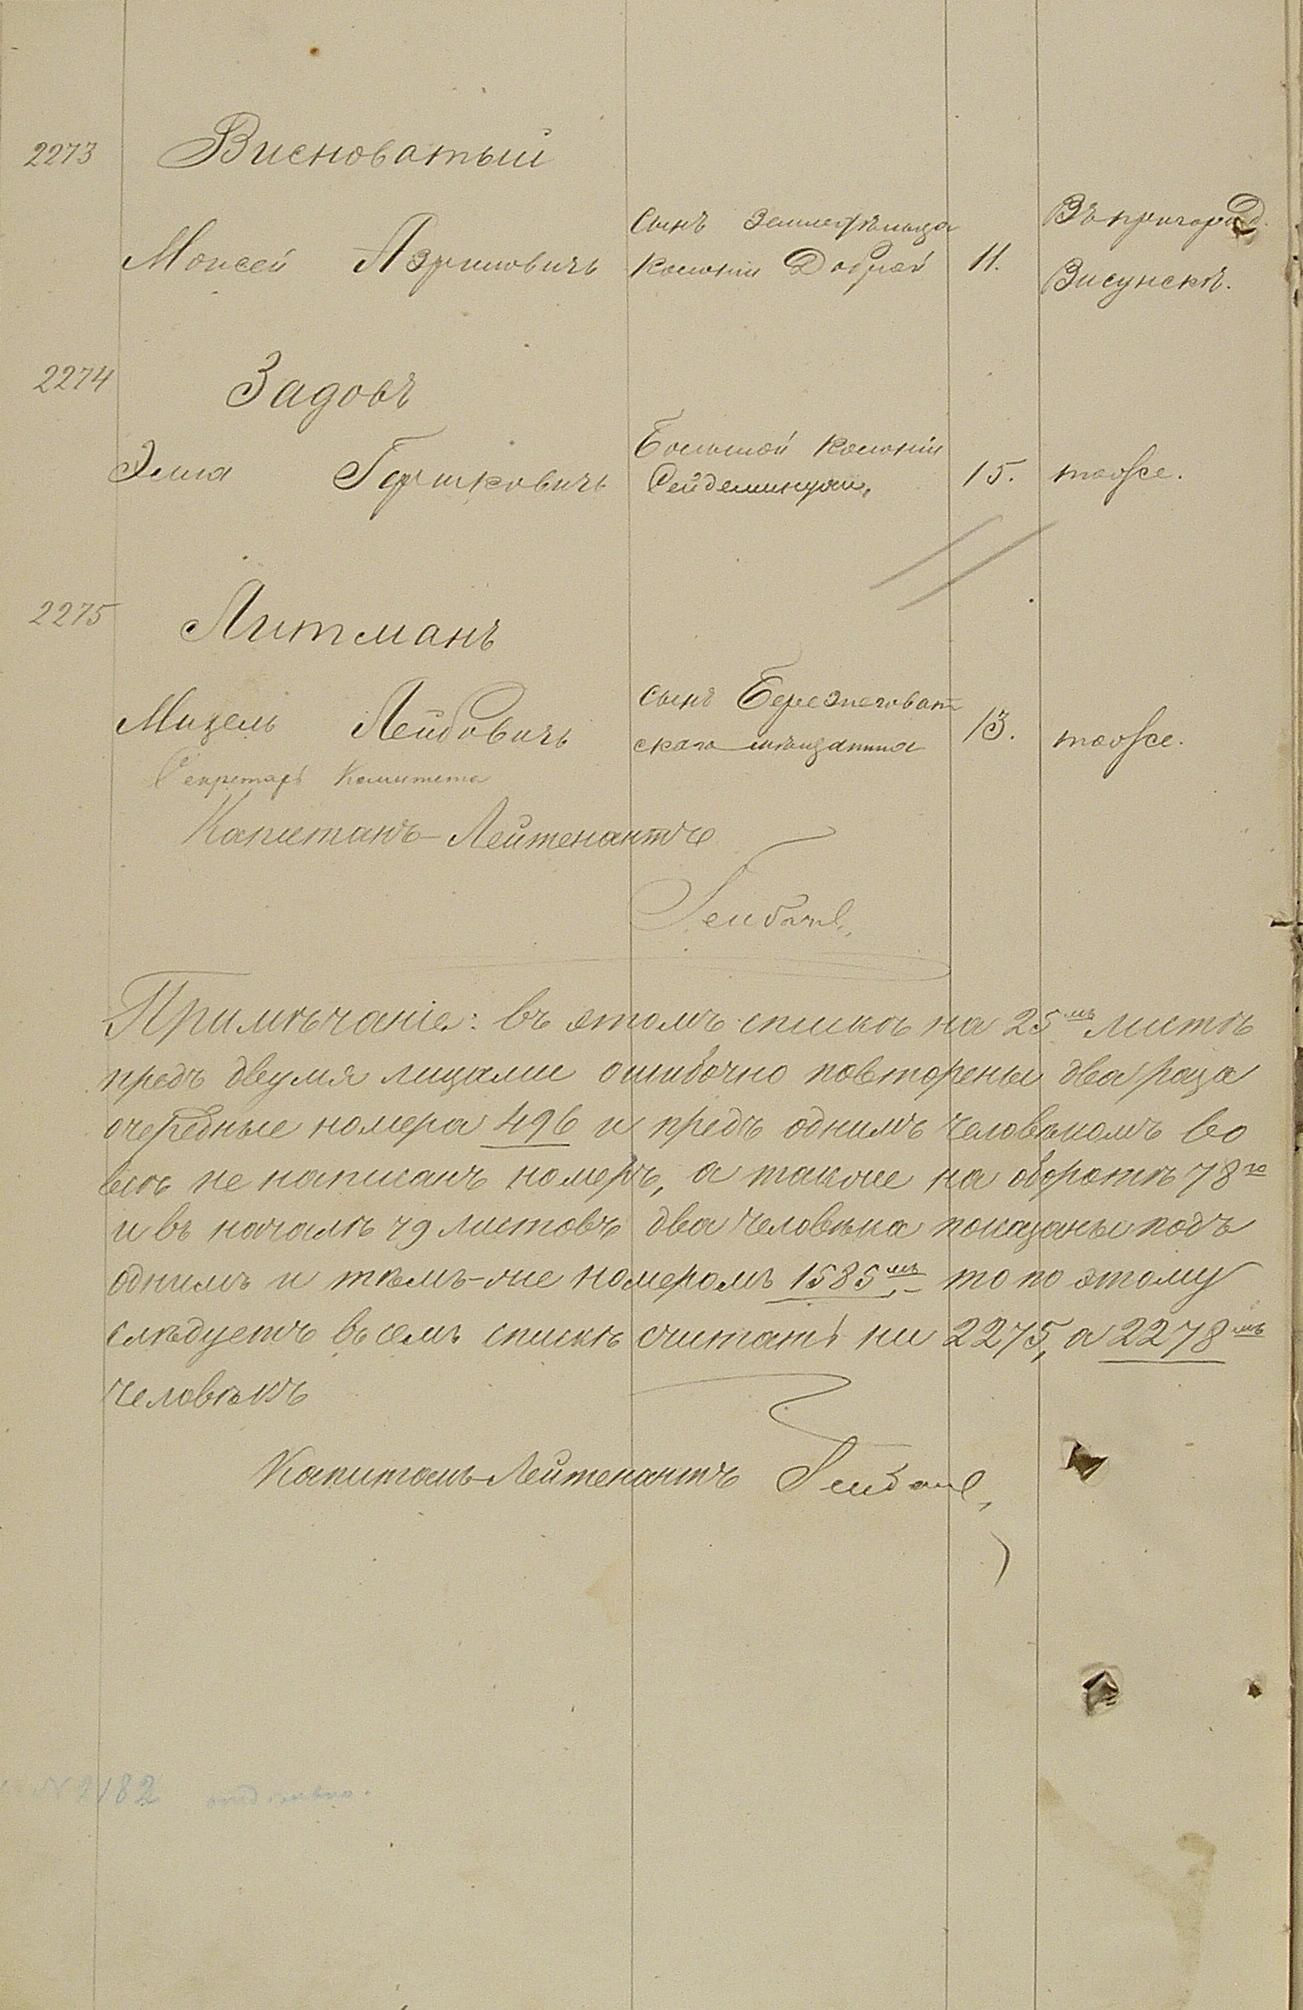 2273 Висноватый
Моисей Азриловичъ сынъ земледѣльца колоніи Доброй 11. Въ пригород. Висунскѣ.
2274 Задовъ
Элиа Гершковичъ Большой колоніи Сейдеминухи, 15. тоже.
2275 Литманъ
Мизель Лейбовичъ сынъ Березнеговатскаго мѣщанина 13. тоже.
Секретарь Комитета
Капитанъ-Лейтенантъ
Примѣчаніе: въ этомъ спискѣ на 25мъ листѣ
предъ двумя лицами ошибочно повторены два раза
очередные номера 496 и предъ однимъ человѣкомъ во
все не написанъ номеръ, а также на оборотѣ 78го
и въ началѣ 79 листовъ два человѣка показаны подъ
однимъ и тѣмъ-же номеромъ 1585мъ, то по этому
слѣдуетъ въ семъ спискѣ считать не 2275, а 2278мъ
человѣкъ
Капитанъ-Лейтенантъ
№ 2182